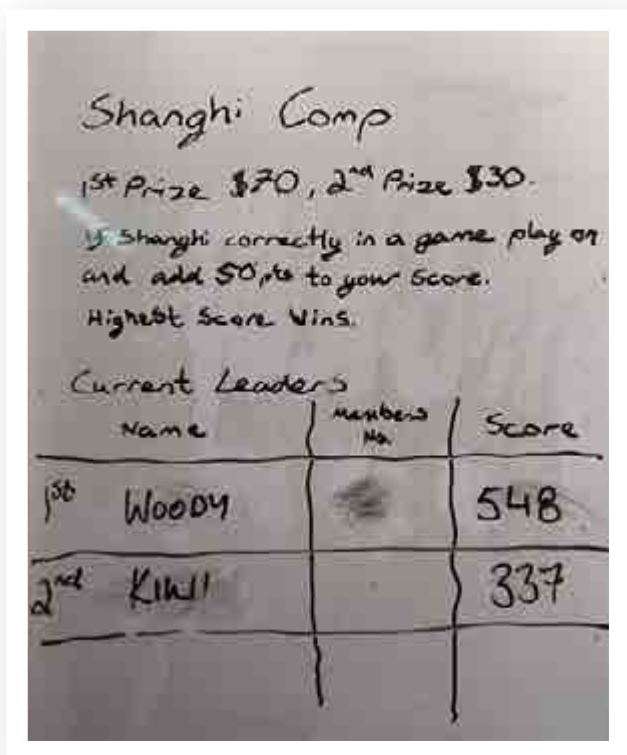 Shanghi Comp
1st Prize $70, 2nd Prize $30.
If Shanghi correctly in a game play on
and add 50pts to your Score.
Highest Score Wins.
Current Leaders
Name Members No. Score
1st WOODY 548
2nd KIWI 337